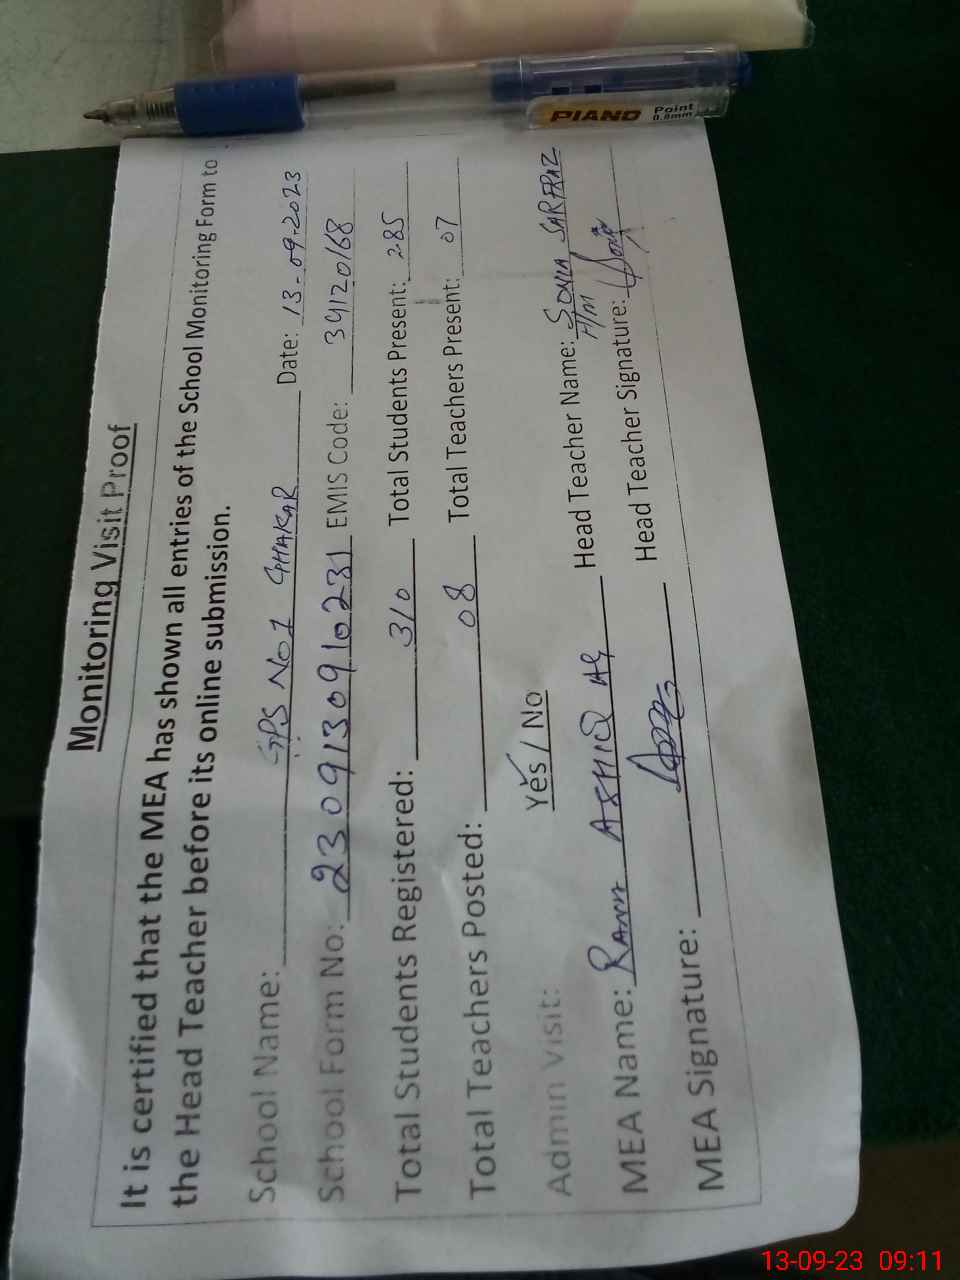 PIANO Point 0.8mm
Monitoring Visit Proof
It is certified that the MEA has shown all entries of the School Monitoring Form to
the Head Teacher before its online submission.
School Name: GPS No 1 GHAKAR Date: 13-09-2023
School Form No: 2309130910231 EMIS Code: 34120168
Total Students Registered: 310 Total Students Present: 285
Total Teachers Posted: 08 Total Teachers Present: 07
Admin Visit: Yes / No
MEA Name: RANA ASHIQ Head Teacher Name: SONIA SARFRAZ
H/M
MEA Signature: Head Teacher Signature:
13-09-23 09:11